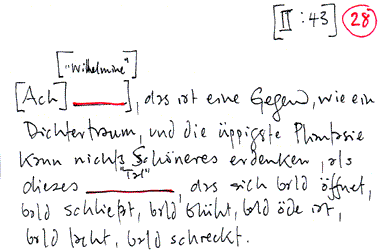 [II : 43] 28
["Wilhelmine"]
[Ach] ______, das ist eine Gegend, wie ein
Dichtertraum, und die üppigste Phantasie
kann nichts Schöneres erdenken, als
"Tal"
dieses ______ das sich bald öffnet,
bald schließt, bald blüht, bald öde ist,
bald lacht, bald schreckt.